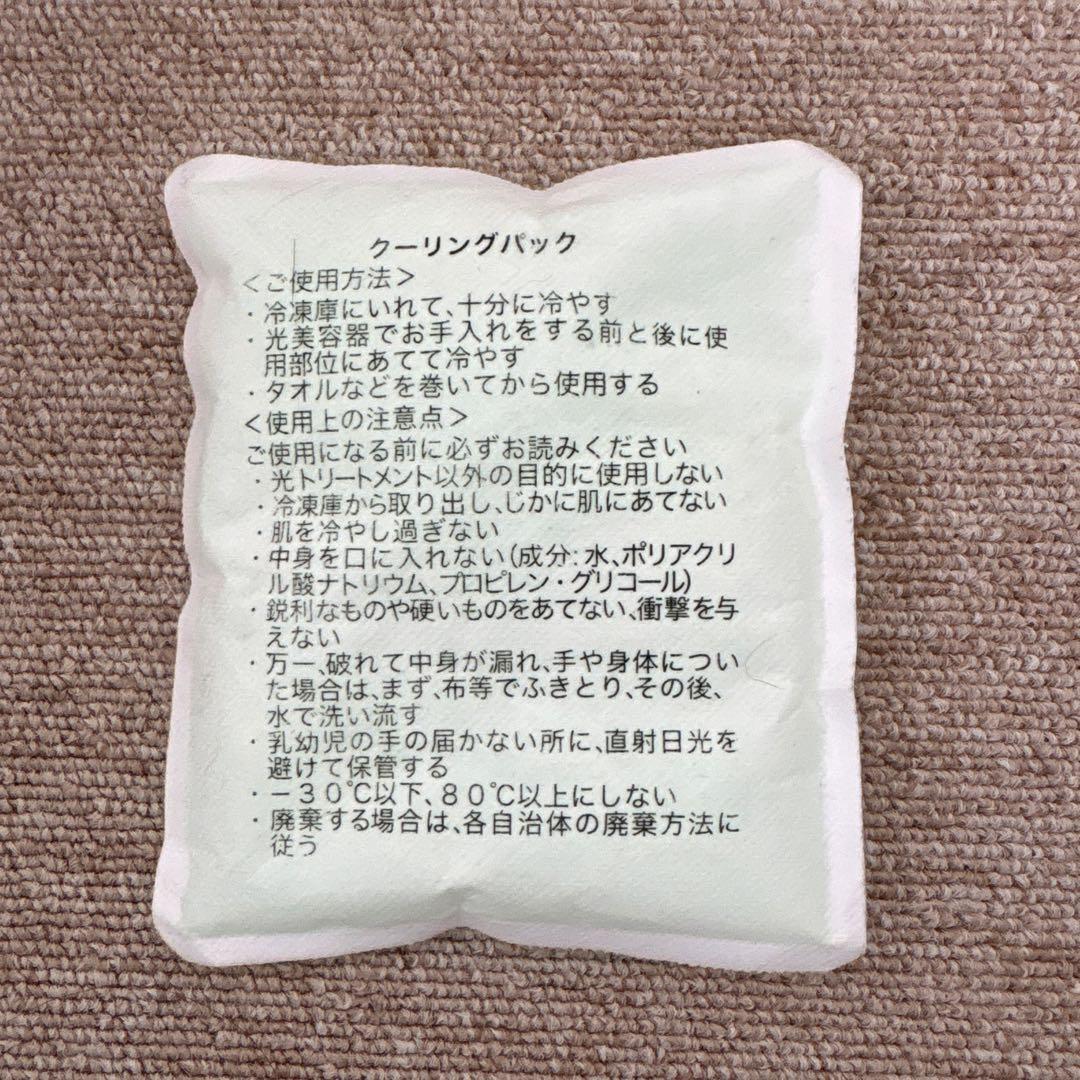 クーリングパック
＜ご使用方法＞
・冷凍庫にいれて、十分に冷やす
・光美容器でお手入れをする前と後に使
用部位にあてて冷やす
・タオルなどを巻いてから使用する
＜使用上の注意点＞
ご使用になる前に必ずお読みください
・光トリートメント以外の目的に使用しない
・冷凍庫から取り出し、じかに肌にあてない
・肌を冷やし過ぎない
・中身を口に入れない（成分：水、ポリアクリ
ル酸ナトリウム、プロピレン・グリコール）
・鋭利なものや硬いものをあてない、衝撃を与
えない
・万一、破れて中身が漏れ、手や身体につい
た場合は、まず、布等でふきとり、その後、
水で洗い流す
・乳幼児の手の届かない所に、直射日光を
避けて保管する
・－３０℃以下、８０℃以上にしない
・廃棄する場合は、各自治体の廃棄方法に
従う